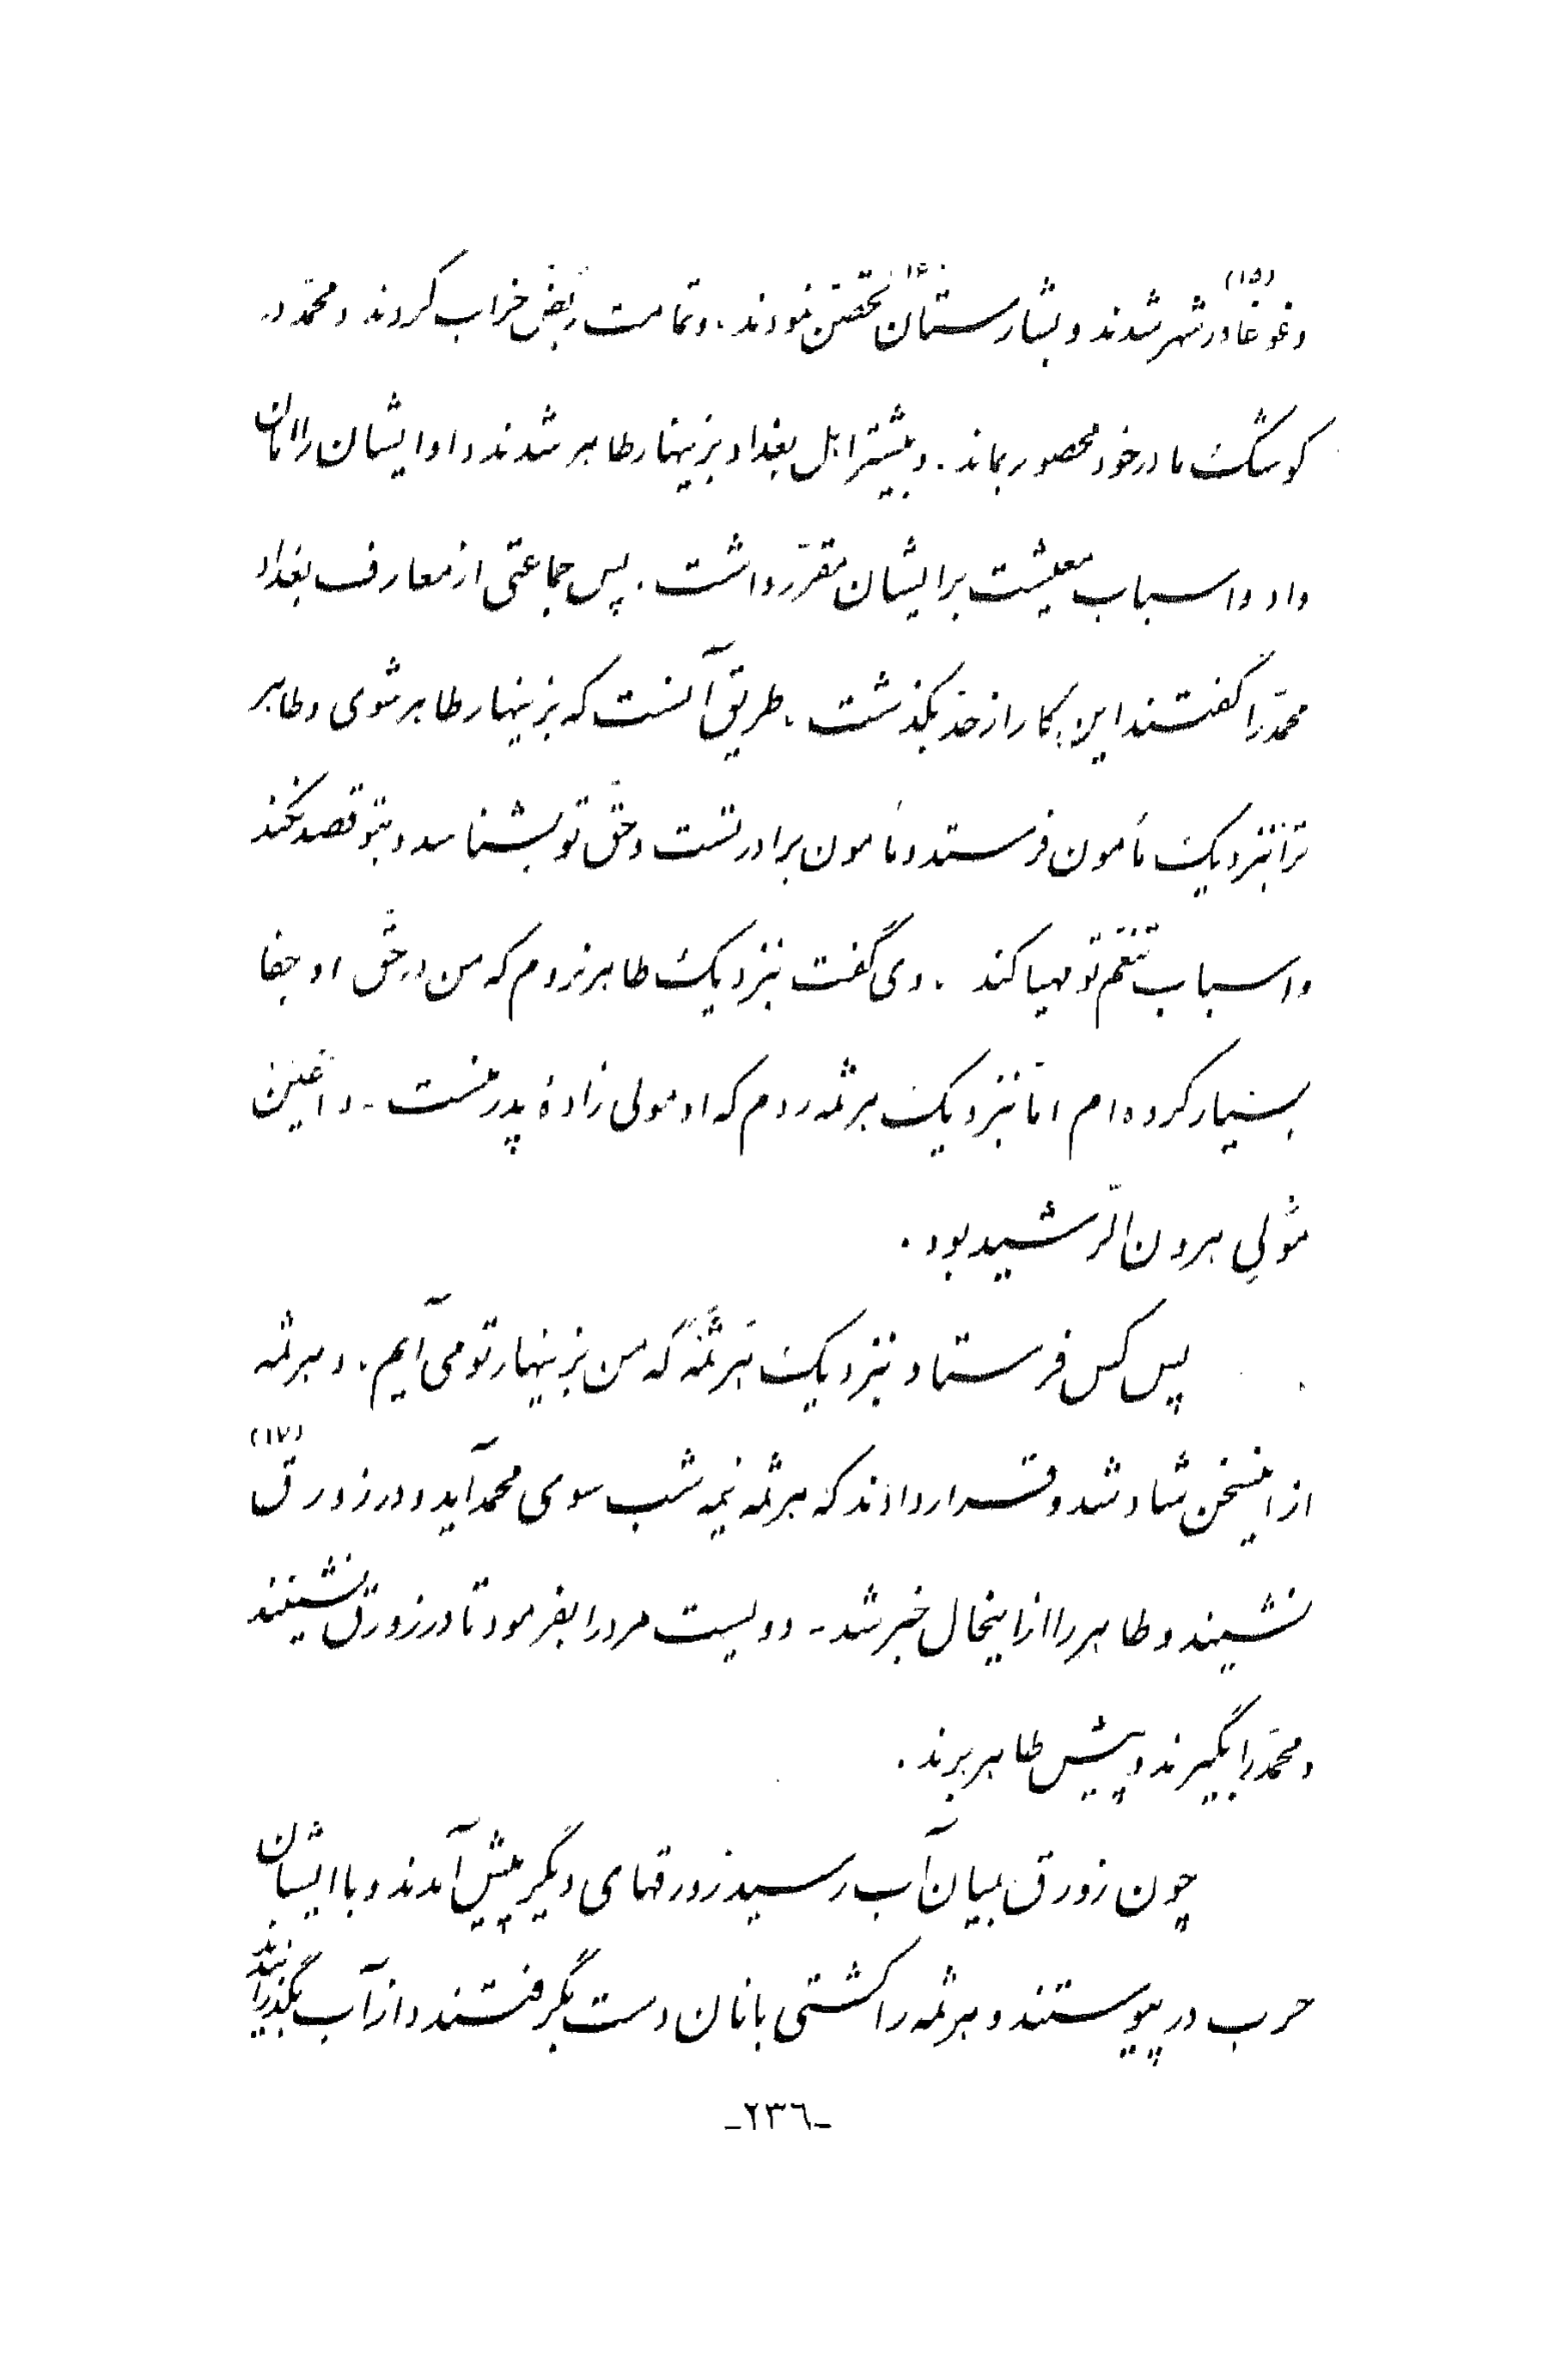 (۱۵) (۱۶)
وغوغا در شهر شدند و بشارستان تحصّن نمودند. و تمامت ربض خراب کردند و محمّد در
کوشک مادر خود محصور بماند. و بیشتر اهل بغداد بزینهار طاهر شدند و او ایشان را امان
داد و اسباب معیشت بر ایشان مقرّر داشت. پس جماعتی از معارف بغداد
محمّد را گفتند این کار از حدّ بگذشت. طریق آنست که بزینهار طاهر شوی و طاهر
ترا بنزدیک مأمون فرستد و مأمون برادر تست و حقّ تو بشناسد و بتو قصد نکند
و اسباب تنعّم تو مهیا کند. وی گفت بنزدیک طاهر نروم که من در حقّ او جفا
بسیار کرده‌ام امّا بنزدیک هرثمه روم که او مولی زادهٔ پدر منست - و اعین
مولی هرون الرّشید بود.
پس کس فرستاد بنزدیک هرثمه که من بزینهار تو می‌آیم. و هرثمه
(۱۷)
از اینسخن شاد شد و قرار دادند که هرثمه نیمه شب سوی محمد آید و در زورق
نشیند و طاهر را از اینحال خبر شد - دویست مرد را بفرمود تا در زورق نشینند
و محمّد را بگیرند و پیش طاهر برند.
چون زورق بمیان آب رسید زورقهای دیگر پیش آمدند و با ایشان
حرب در پیوستند و هرثمه را کشتی بانان دست بگرفتند و از آب بگذرانیدند
-۲۳٦-